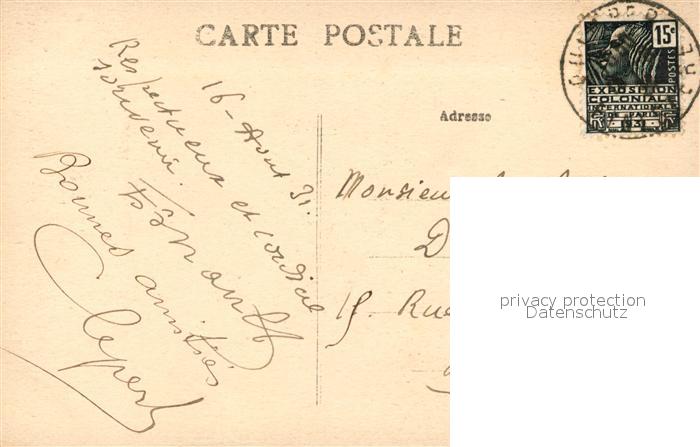 CARTE POSTALE
15c
POSTES
EXPOSITION
COLONIALE
INTERNATIONALE
DE PARIS
1931
Adresse
16 - Aout 31.
Respectueux et cordial
souvenir.
Bonnes amitiés
Monsieur
D
15. Rue
privacy protection
Datenschutz